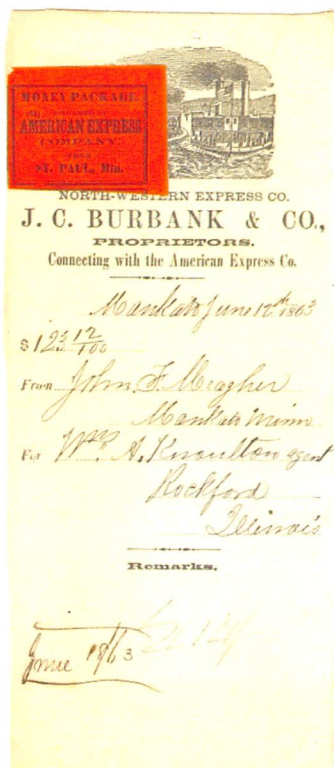 MONEY PACKAGE
AMERICAN EXPRESS
COMPANY,
ST. PAUL, Min.
NORTH-WESTERN EXPRESS CO.
J. C. BURBANK & CO.,
PROPRIETORS.
Connecting with the American Express Co.
Mankato June 12th 1863
$123 12/100
From John F. Meagher
Mankato Minn
For Wm. A. Knowlton agent
Rockford
Illinois
Remarks.
June 18/63